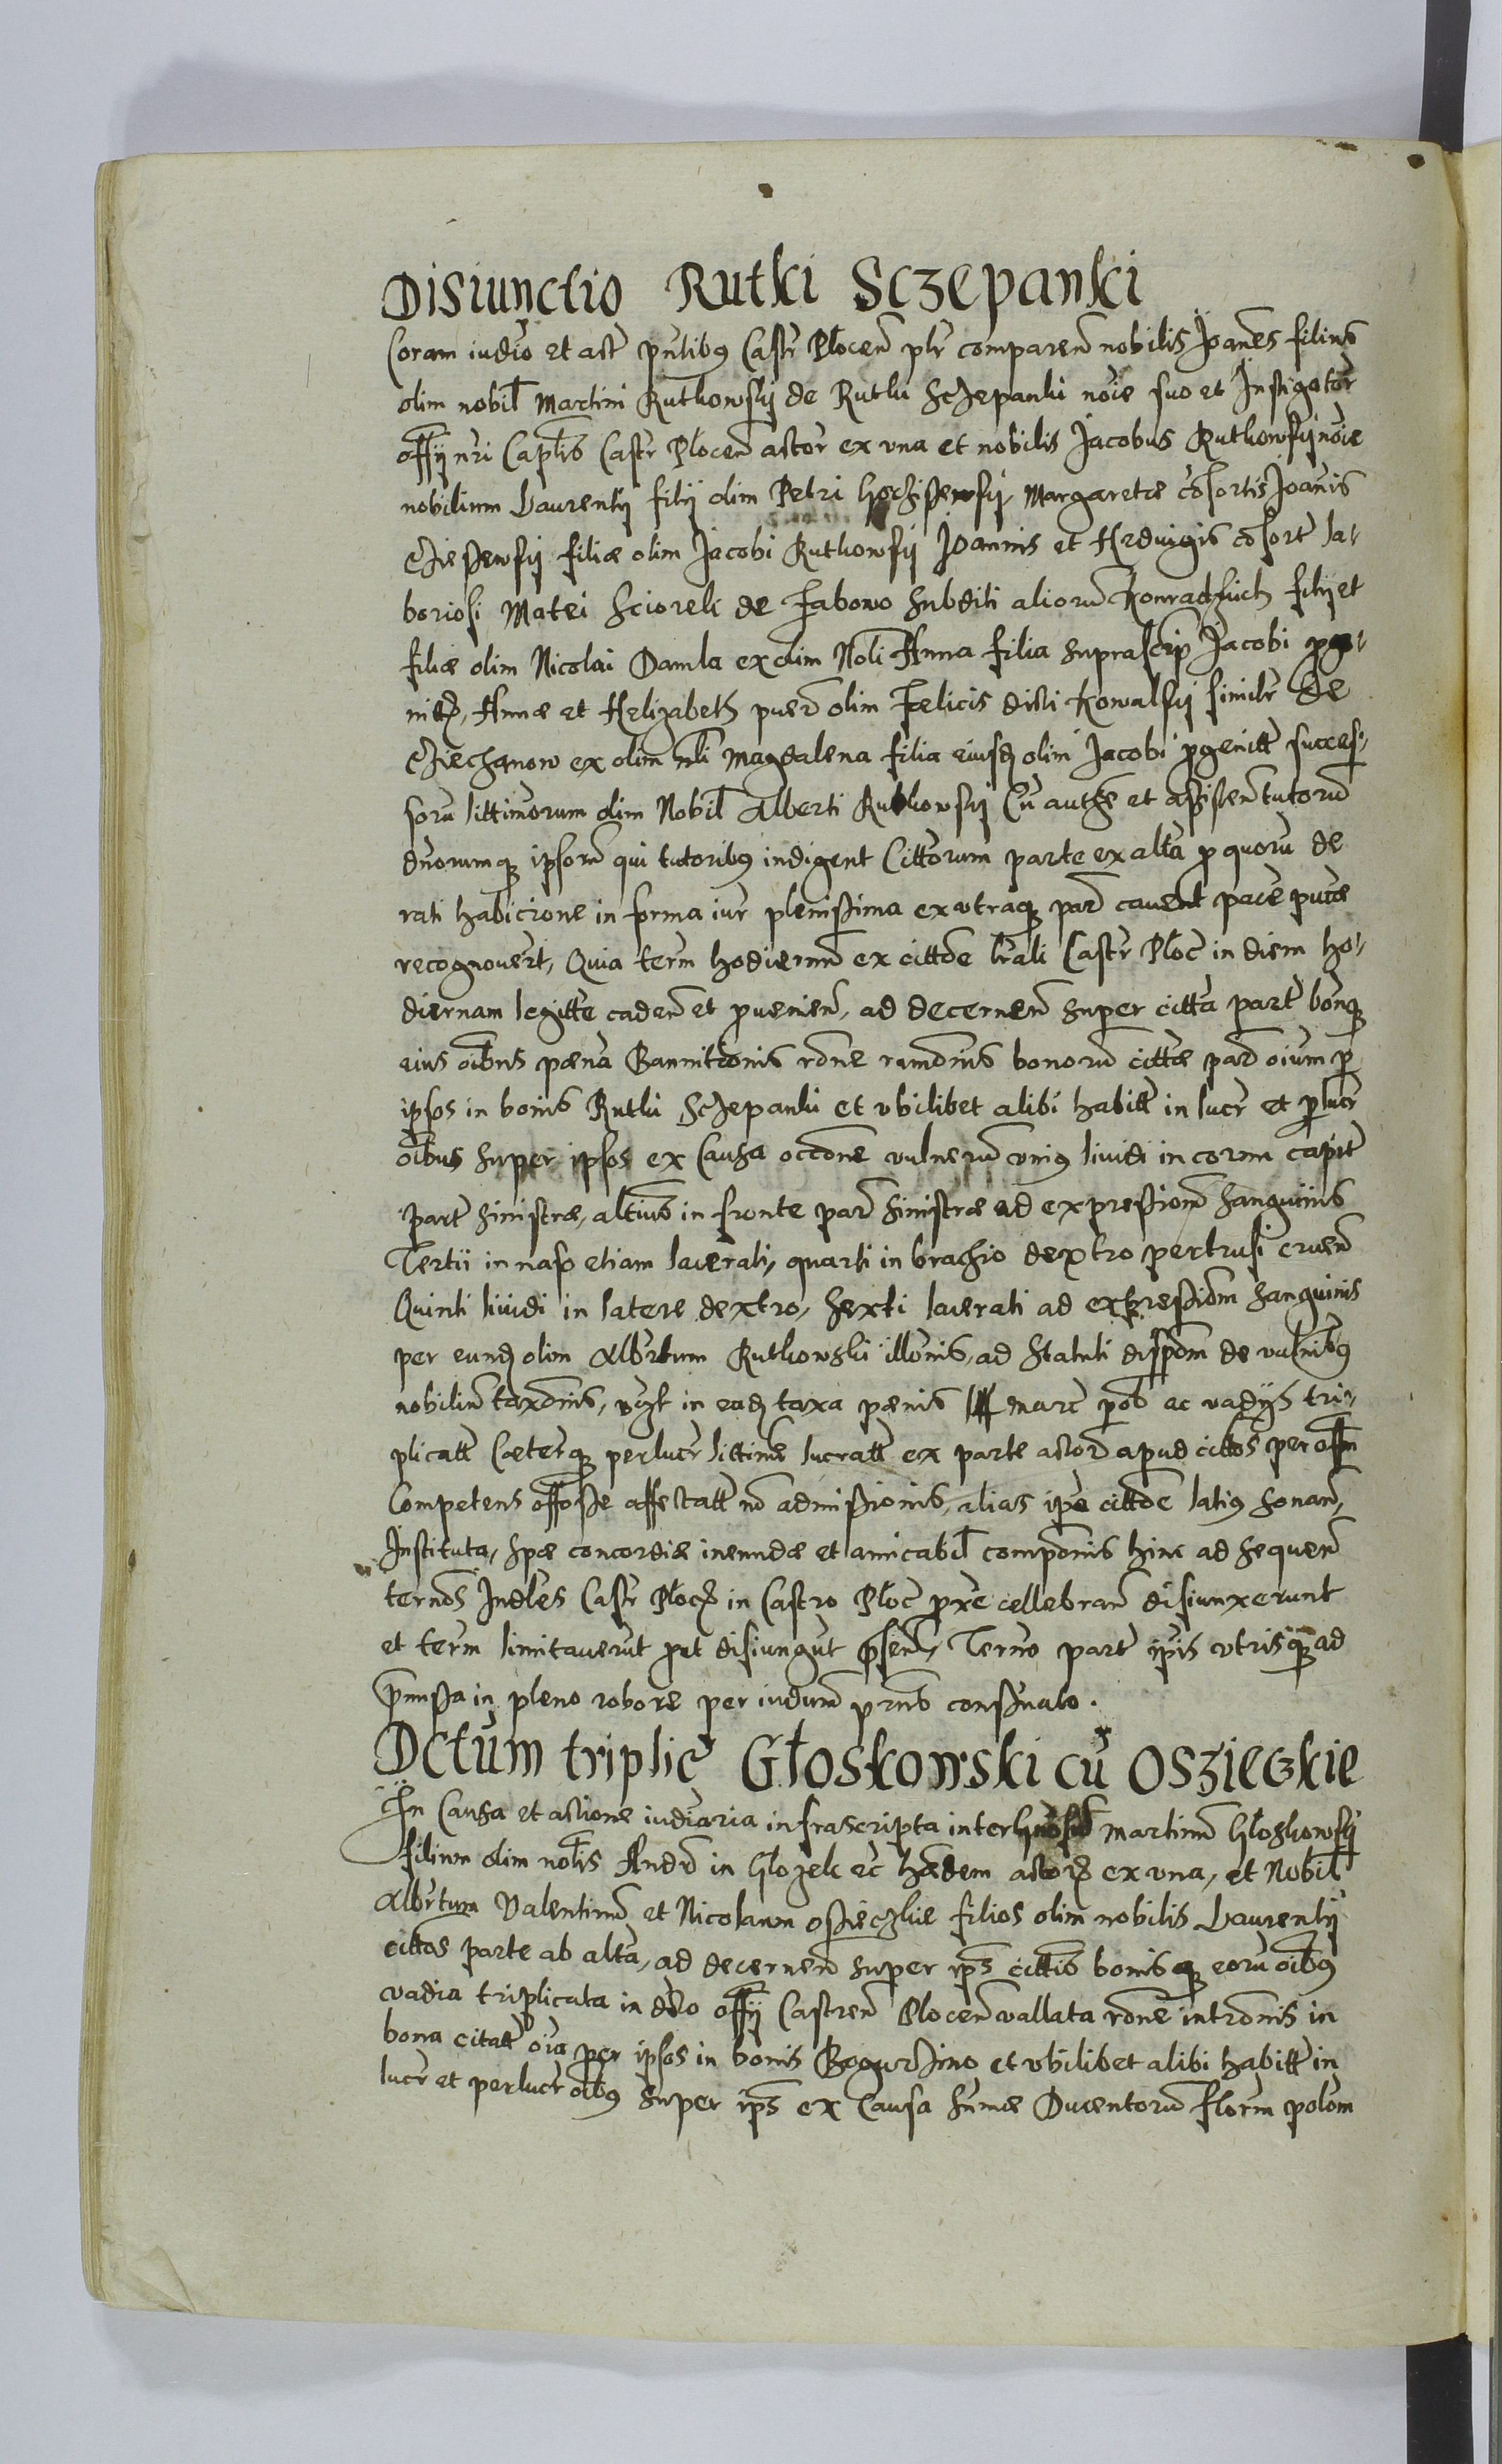 Disiunctio Rutki Sczepanki
Coram iudio et actr pntibus Castr Plocen plr comparen nobilis Joanes filius
olim nobil Martini Rutkowsky de Rutki Sczepanki noie suo et Instigator
offij nri Caplis Castr Plocen actor ex una et nobilis Jacobus Rutkowsky noie
nobilium Laurentij filij olim Petri Margaretæ cosortis Joanis
filiæ olim Jacobi Rutkowsij Joannis et Hedvigis cosort la-
boriosi Matei Sciorek de Fabowo subditi aliorum Konradzkich filij et
filiæ olim Nicolai Damla ex olim Noli Anna filia suprascrip Jacobi proge-
nit, Annæ et Helizabeth puer olim Felicis dicti Kowalsky similr de
Cziechanow ex olim nli Magdalena filia eiusd olim Jacobi progenitt succes-
soru littimorum olim Nobil Alberti Rutkowsij Cu authe et assisten tutoru
duorumq ipsoru qui tutoribus indigent Cittorum parte ex alta pro quoru de
rati habicione in forma iur plenissima ex utraq par cavent parte
recognovert, Quia term hodiernu ex cittoe lrali Castr Ploc in diem ho-
diernam legitte caden et provenien, ad decernen super citta part bonq
eius oibus pæna Bannitionis rone bonoru cittæ par oium p
ipsos in bonis Rutki Sczepanki et ubilibet alibi habitt in lucr et perlucr
oibus super ipsos ex Causa occone vulneru unius lividi in cornu capit
part sinistræ, altius in fronte par sinistræ ad expressionem sanguinis
Tertii in naso etiam lacerati, quarti in brachio dextro pertrusi cruen
Quinti lividi in latere dextro, sexti lacerati ad expressiom sanguinis
per eund olim Albrtum Rutkowski ad Statuti dispom de vulnibus
nobiliu taxonis, in ead taxa pænis marc ac vadijs tri-
plicatt Cæterq perlucr littime lucratt ex parte actor apud cittos per offm
Competens offose affectatt no admissionis, alias ipa cittoe latius sonan,
Instituta, Spæ concordiæ ineundæ et amicabil componis hinc ad sequen
termos Indles Castr Ploc in Castro Ploc prxe cellebran disiunxerunt
et term limitaverut prt disiungut psent, Termo part ipis utrisq ad
pmissa in pleno robore per iudium prns consvato.
Dctum triplic Głoskowski cu Oszieczkie
In Causa et actione iudiaria infrascripta inter Martinu Gloskowsky
filium olim nolis Andr in Glozek ac hædem actor ex una, et Nobil
Albrtum Valentinu et Nicolaum Osieczkie filios olim nobilis Laurentij
cittos parte ab alta, ad decernen super ips cittis bonisq eoru oibus
vadia triplicata in dcto offij Castren Plocen vallata rone intronis in
bona citatt oia per ipsos in bonis et ubilibet alibi habitt in
lucr et perlucr oibus super ips ex Causa sumæ Ducentoru florm polom